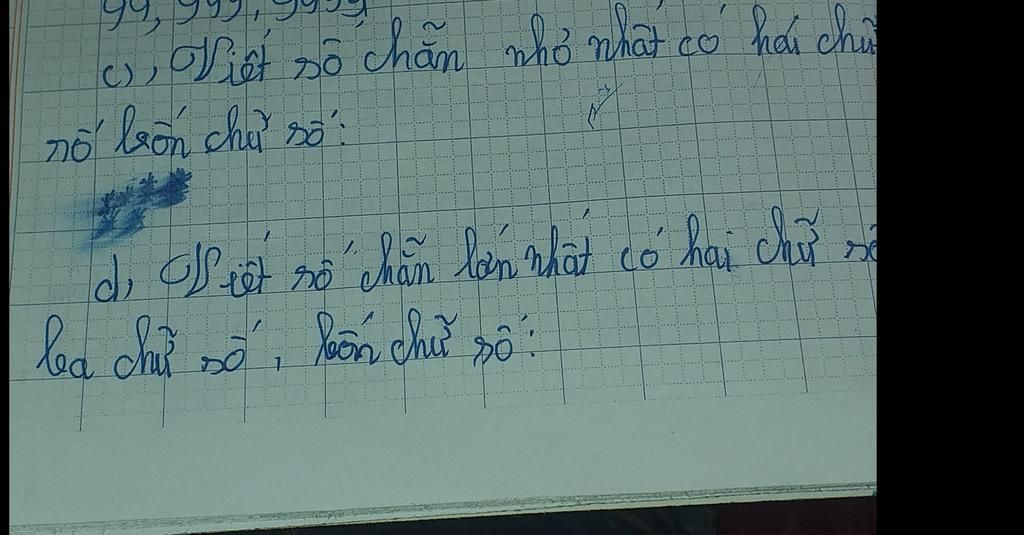 99, 999, 9999
c), Viết số chẵn nhỏ nhất có hai chữ
số bốn chữ số:
d, Viết số chẵn lớn nhất có hai chữ số
ba chữ số, bốn chữ số: